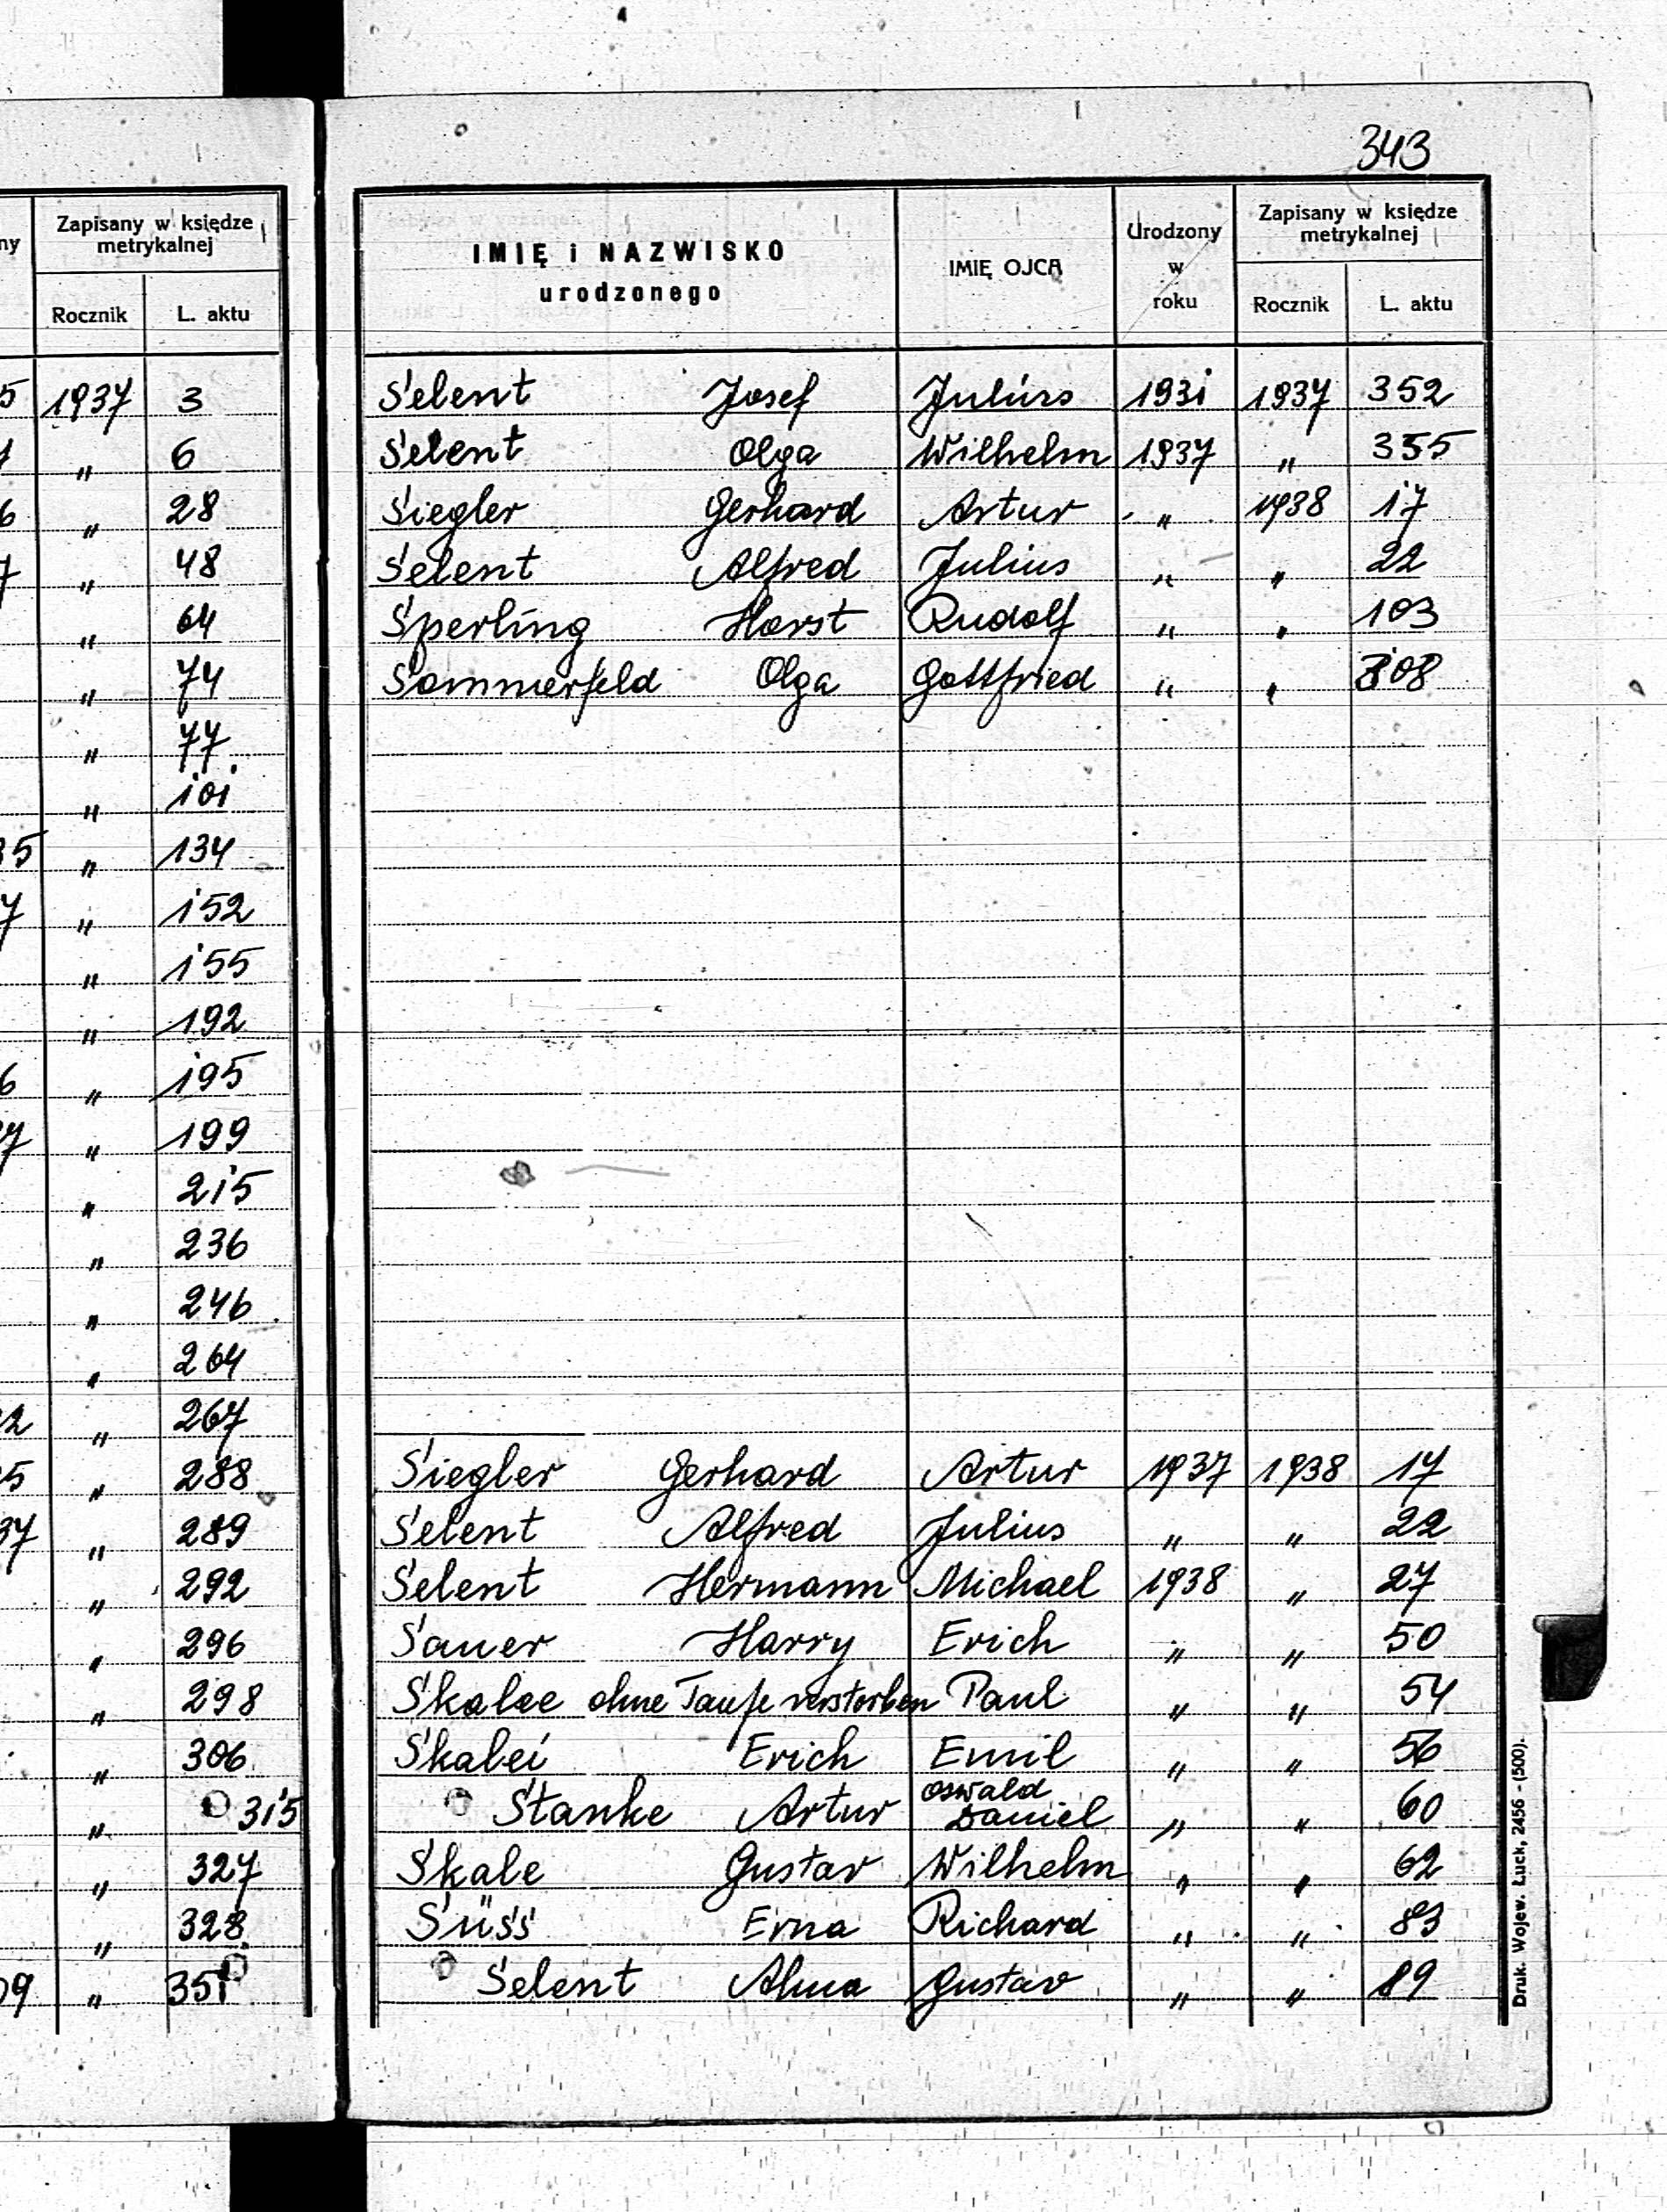 343
ny
Zapisany w księdze metrykalnej
Rocznik L. aktu
5 1937 3
" 6
6 " 28
7 " 48
" 64
" 74
" 77.
" 101
35 " 134
7 " 152
" 155
" 192
6 " 195
37 " 199
" 215
" 236
" 246
" 264
2 " 267
5 " 288
37 " 289
" 292
" 296
" 298
" 306
" 315
" 327
" 328
09 " 351
IMIĘ i NAZWISKO urodzonego
IMIĘ OJCA
Urodzony w roku
Zapisany w księdze metrykalnej
Rocznik L. aktu
Selent Josef Julius 1931 1937 352
Selent Olga Wilhelm 1937 " 355
Siegler Gerhard Artur " 1938 17
Selent Alfred Julius " " 22
Sperling Horst Rudolf " " 103
Sommerfeld Olga Gottfried " "
Siegler Gerhard Artur 1937 1938 17
Selent Alfred Julius " " 22
Selent Hermann Michael 1938 " 27
Sauer Harry Erich " " 50
Skalee ohne Taufe verstorben Paul " " 54
Skalei Erich Emil " " 56
Stanke Artur Oswald Daniel " " 60
Skale Gustav Wilhelm " " 62
Süss Erna Richard " " 83
Selent Alma Gustav " " 89
Druk. Wojew. Łuck, 2456 - (500).